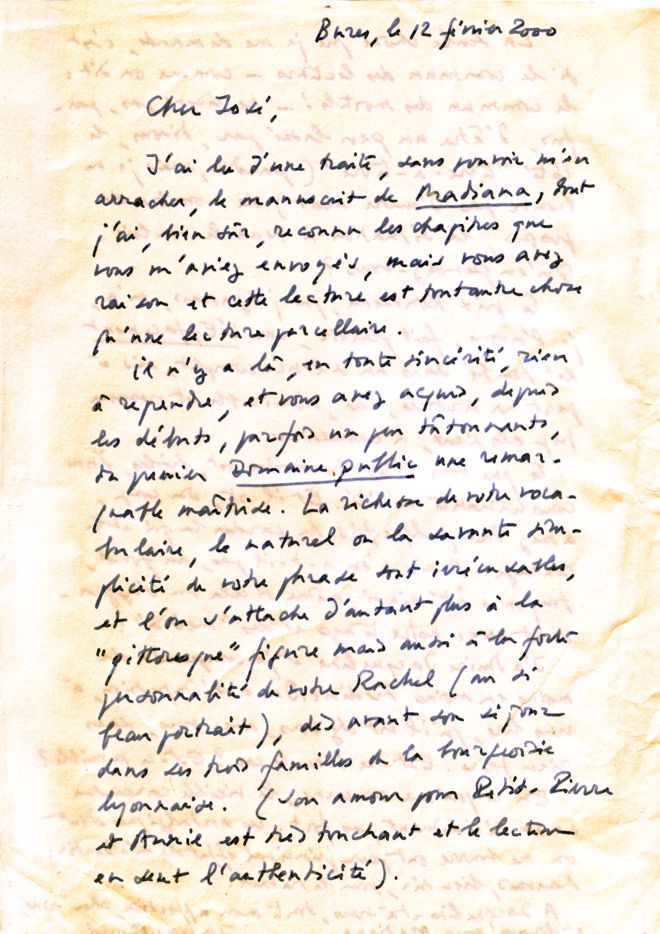 Bures, le 12 février 2000
Cher José,
J'ai lu d'une traite, sans pouvoir m'en
arracher, le manuscrit de Madiana, dont
j'ai, bien sûr, reconnu les chapitres que
vous m'aviez envoyés, mais vous avez
raison et cette lecture est tout autre chose
qu'une lecture parcellaire.
il n'y a là, en toute sincérité, rien
à reprendre, et vous avez acquis, depuis
les débuts, parfois un peu tâtonnants,
du premier Domaine public une remar-
quable maîtrise. La richesse de votre voca-
bulaire, le naturel ou la savante sim-
plicité de votre phrase sont irrécusables,
et l'on s'attache d'autant plus à la
"pittoresque" figure mais aussi à la forte
personnalité de votre Rachel (au si
beau portrait), dès avant son séjour
dans ses trois familles de la bourgeoisie
lyonnaise. (Son amour pour Petit-Pierre
et est très touchant et le lecteur
en sent l'authenticité).